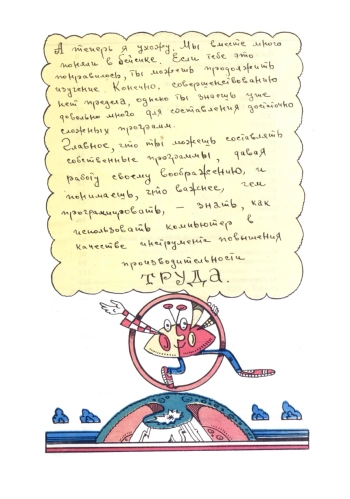 А теперь я ухожу. Мы вместе много
поняли в бейсике. Если тебе это
понравилось, ты можешь продолжить
изучение. Конечно, совершенствованию
нет предела, однако ты знаешь уже
довольно много для составления достаточно
сложных программ.
Главное, что ты можешь составлять
собственные программы, давая
работу своему воображению, и
понимаешь, что важнее, чем
программировать, — знать, как
использовать компьютер в
качестве инструмента повышения
производительности
ТРУДА.